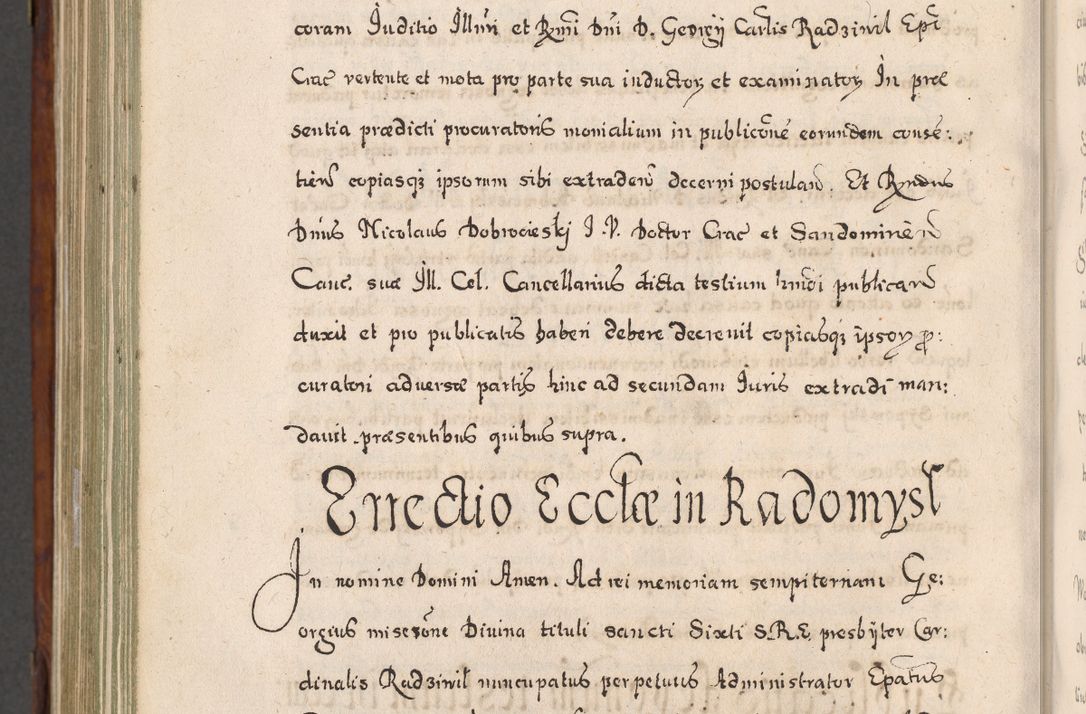 coram Juditio Illmi et Rmi Dni D. Georgij Carlis Radziwil Epi
Crac vertente et mota pro parte sua inductor et examinator In præ
sentia prædicti procuratoris monialium in publicone eorundem conse:
tien copiasq ipsorum sibi extraden decerni postulan. Et Rndus
Dnus Nicolaus Dobrocieski J. V. Doctor Crac et Sandomirien
Canc. suæ Ill. Cel. Cancellarius dicta testium hmoi publicand
duxit et pro publicatis haberi debere decrevit copiasq ipsor pro:
curatori adversæ partis hinc ad secundam Juris extradi man:
davit præsentibus quibus supra.
Errectio Ecclæ in Radomysl
In nomine Domini Amen. Ad rei memoriam sempiternam Ge:
orgius miserone Divina tituli sancti Sixti S.R.E. presbyter Car:
dinalis Radziwil nuncupatus perpetuus Administrator Epatus